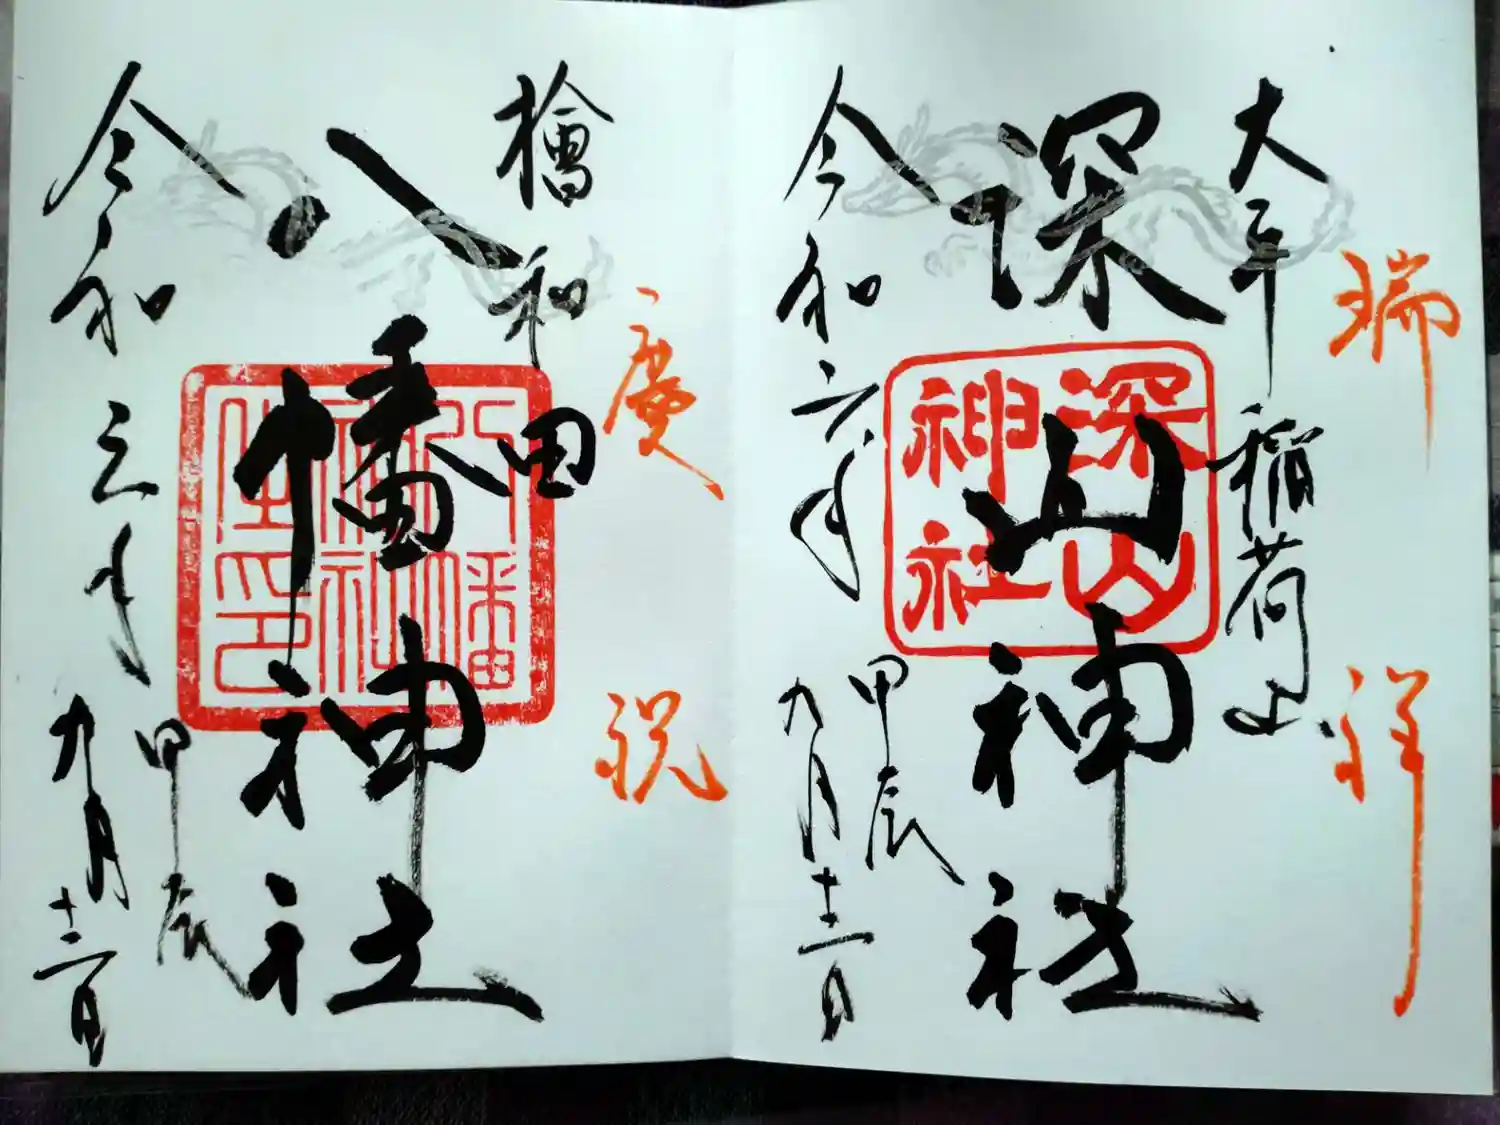 瑞祥
大平稲荷山
深山神社
深山
神社
甲辰
令和六年九月十二日
慶祝
檜和田
八幡神社
八幡
神社
之印
甲辰
令和六年九月十二日